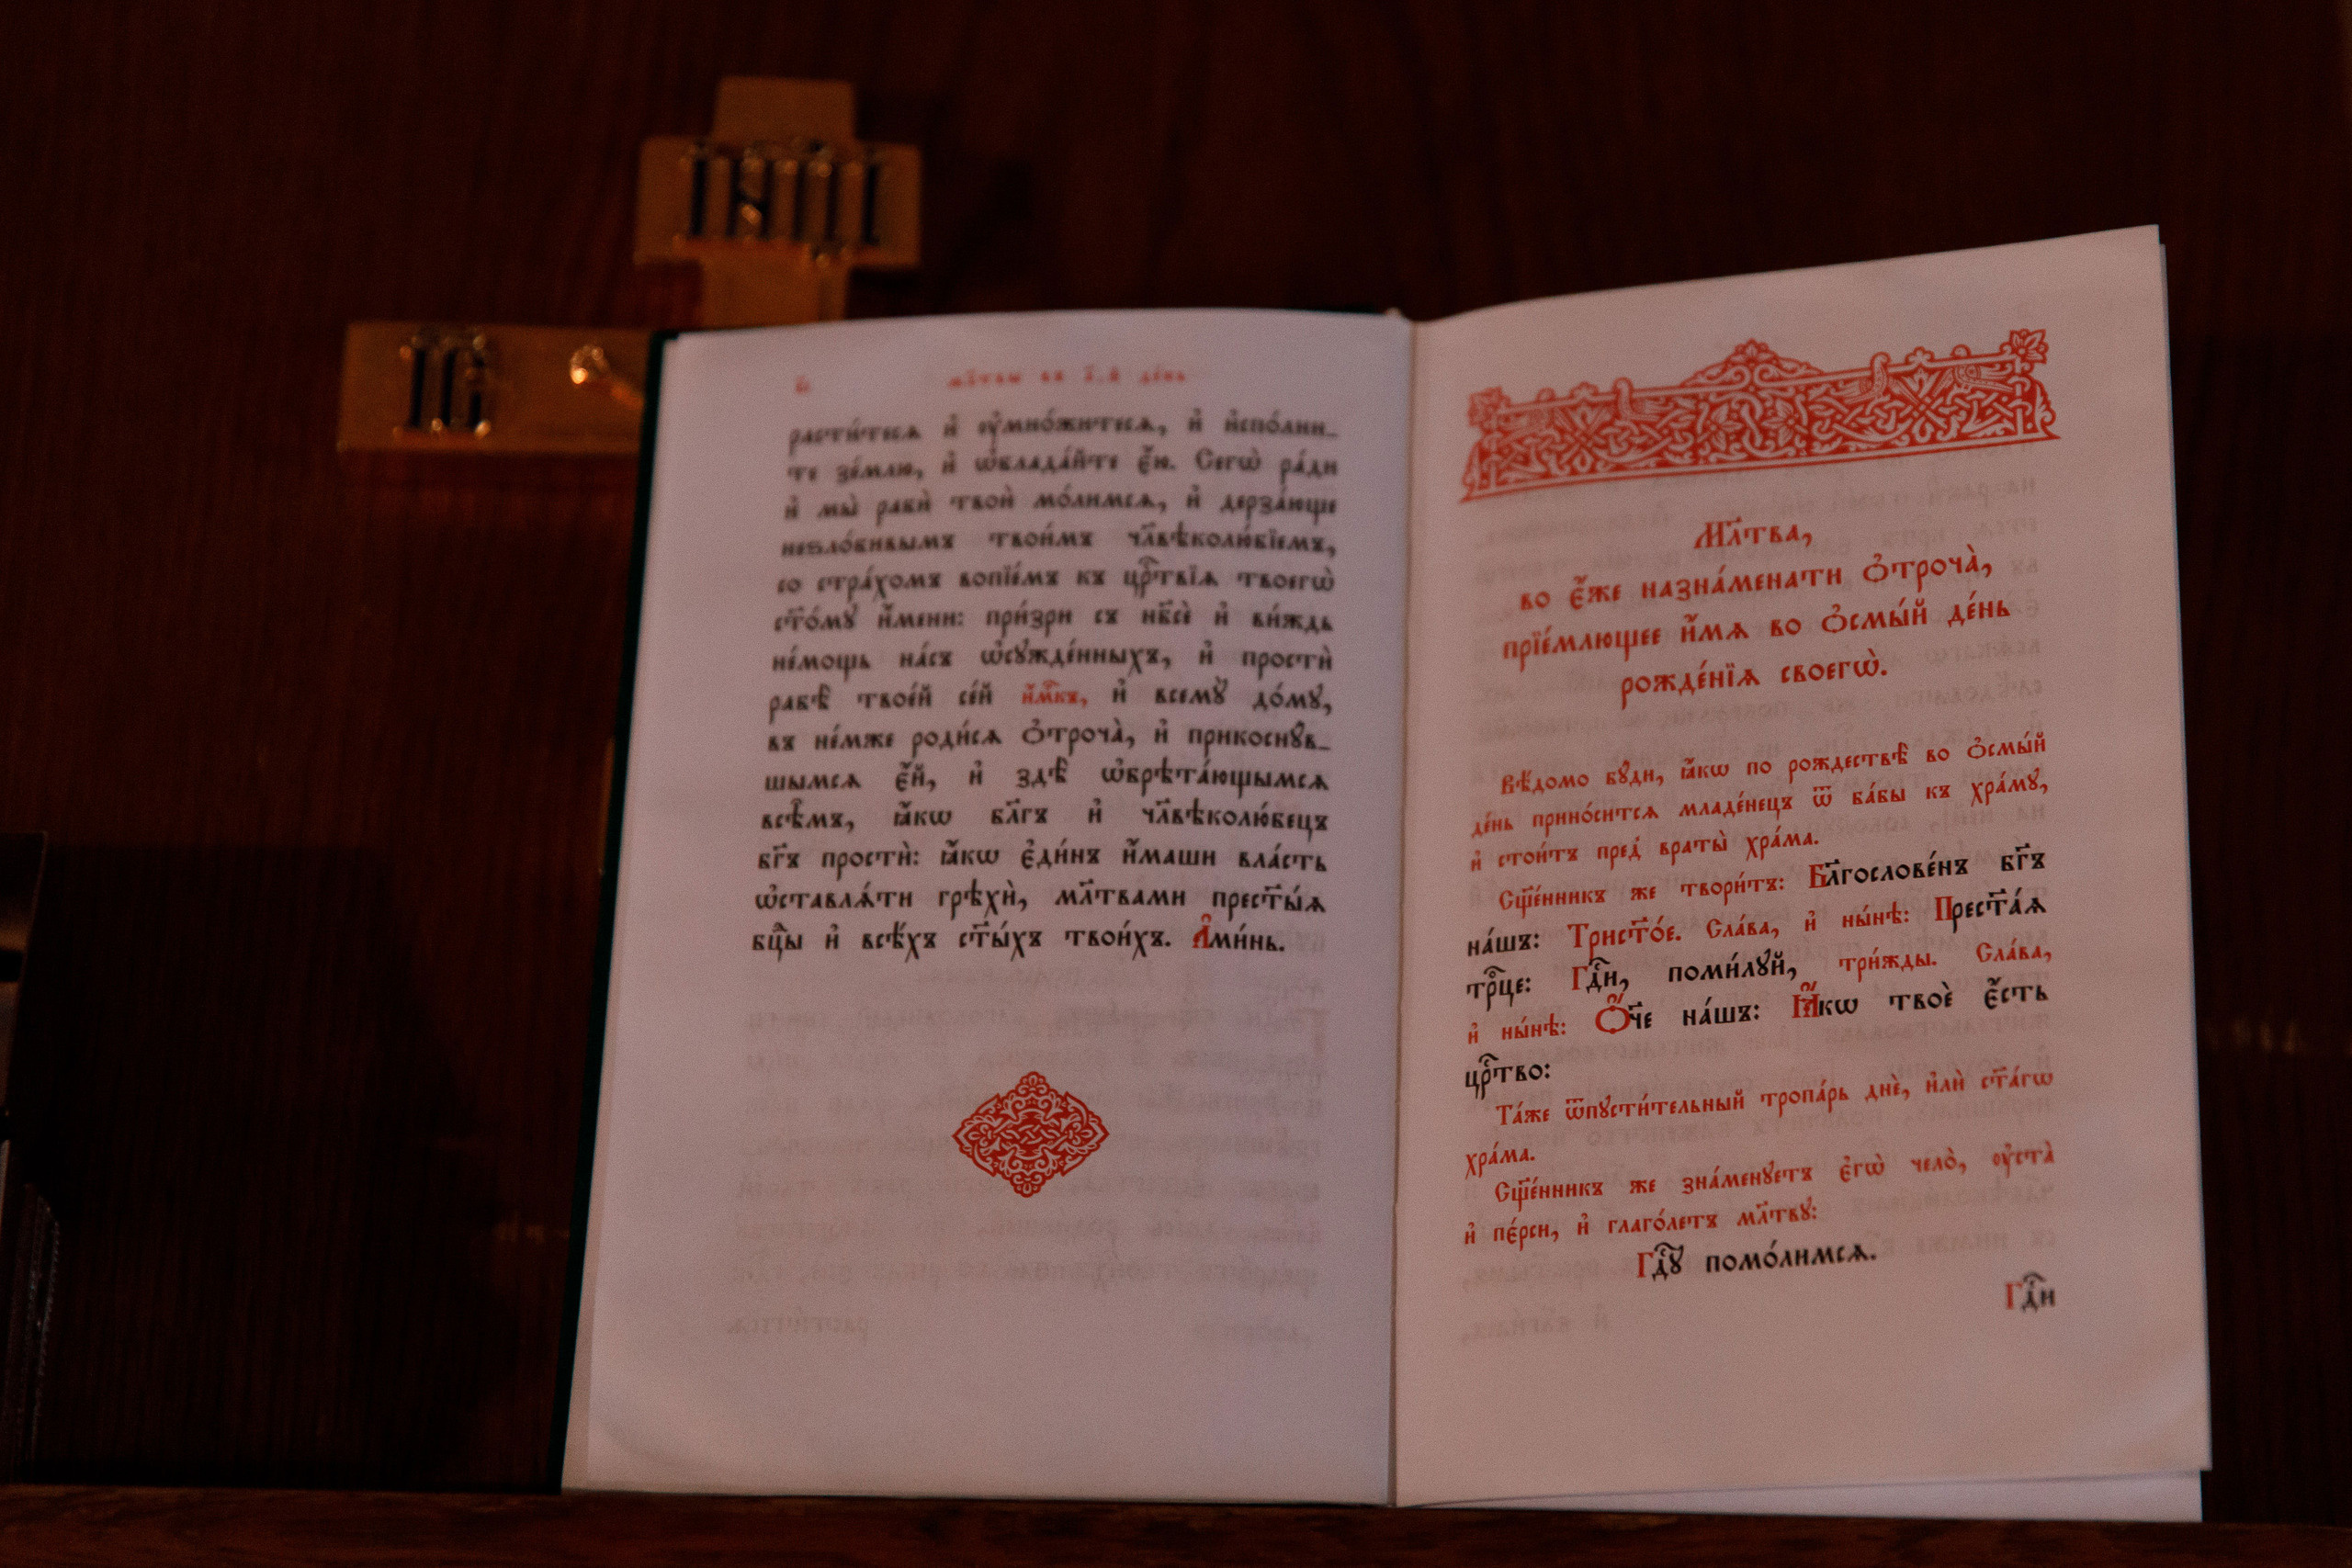 мл҃твы въ а҃.й де́нь
расти́теся и҆ ᲂу҆мно́житеся, и҆ и҆спо́лни_
те зе́млю, и҆ ѡ҆блада́йте є҆́ю. Сегѡ̀ ра́ди
и҆ мы̀ рабѝ твоѝ мо́лимсѧ, и҆ дерза́юще
неѕло́бивымъ твои́мъ чл҃вѣколю́бїемъ,
со стра́хомъ вопїе́мъ къ црⷭ҇твїѧ твоегѡ̀
ст҃о́мꙋ и҆́мени: при́зри съ нб҃сѐ и҆ ви́ждь
не́мощь на́съ ѡ҆сꙋжде́нныхъ, и҆ простѝ
рабѣ̀ твое́й се́й и҆́м҃къ, и҆ всемꙋ̀ до́мꙋ,
въ не́мже роди́сѧ ѻ҆троча̀, и҆ прикоснꙋ́в_
шымсѧ є҆́й, и҆ здѣ̀ ѡ҆брѣта́ющымсѧ
всѣ̑мъ, ꙗ҆́кѡ бл҃гъ и҆ чл҃вѣколю́бецъ
бг҃ъ простѝ: ꙗ҆́кѡ є҆ди́нъ и҆́маши вла́сть
ѡ҆ставлѧ́ти грѣхѝ, мл҃твами прест҃ы́ѧ
бцⷣы и҆ всѣ́хъ ст҃ы́хъ твои́хъ. А҆ми́нь.
Мл҃тва,
во є҆́же назна́менати ѻ҆троча̀,
прїе́млющее и҆́мѧ во ѻ҆смы́й де́нь
рожде́нїѧ своегѡ̀.
Вѣ́домо бꙋди, ꙗ҆́кѡ по рождествѣ̀ во ѻ҆смы́й
де́нь прино́ситсѧ младе́нецъ ѿ ба́бы къ хра́мꙋ,
и҆ стои́тъ пред̾ враты̀ хра́ма.
Сщ҃е́нникъ же твори́тъ: Бл҃гослове́нъ бг҃ъ
на́шъ: Трист҃о́е. Сла́ва, и҆ ны́нѣ: Прест҃а́ѧ
трⷪ҇це: Гдⷭ҇и, поми́лꙋй, три́жды. Сла́ва,
и҆ ны́нѣ: Ѻ҆́ч҃е на́шъ: Ꙗ҆́кѡ твоѐ є҆́сть
црⷭ҇тво:
Та́же ѿпꙋсти́тельный тропа́рь днѐ, и҆лѝ ст҃а́гѡ
хра́ма.
Сщ҃е́нникъ же зна́менꙋетъ є҆гѡ̀ чело̀, ᲂу҆ста̀
и҆ пе́рси, и҆ глаго́летъ мл҃твꙋ:
Гдⷭ҇ꙋ помо́лимсѧ.
Гдⷭ҇и